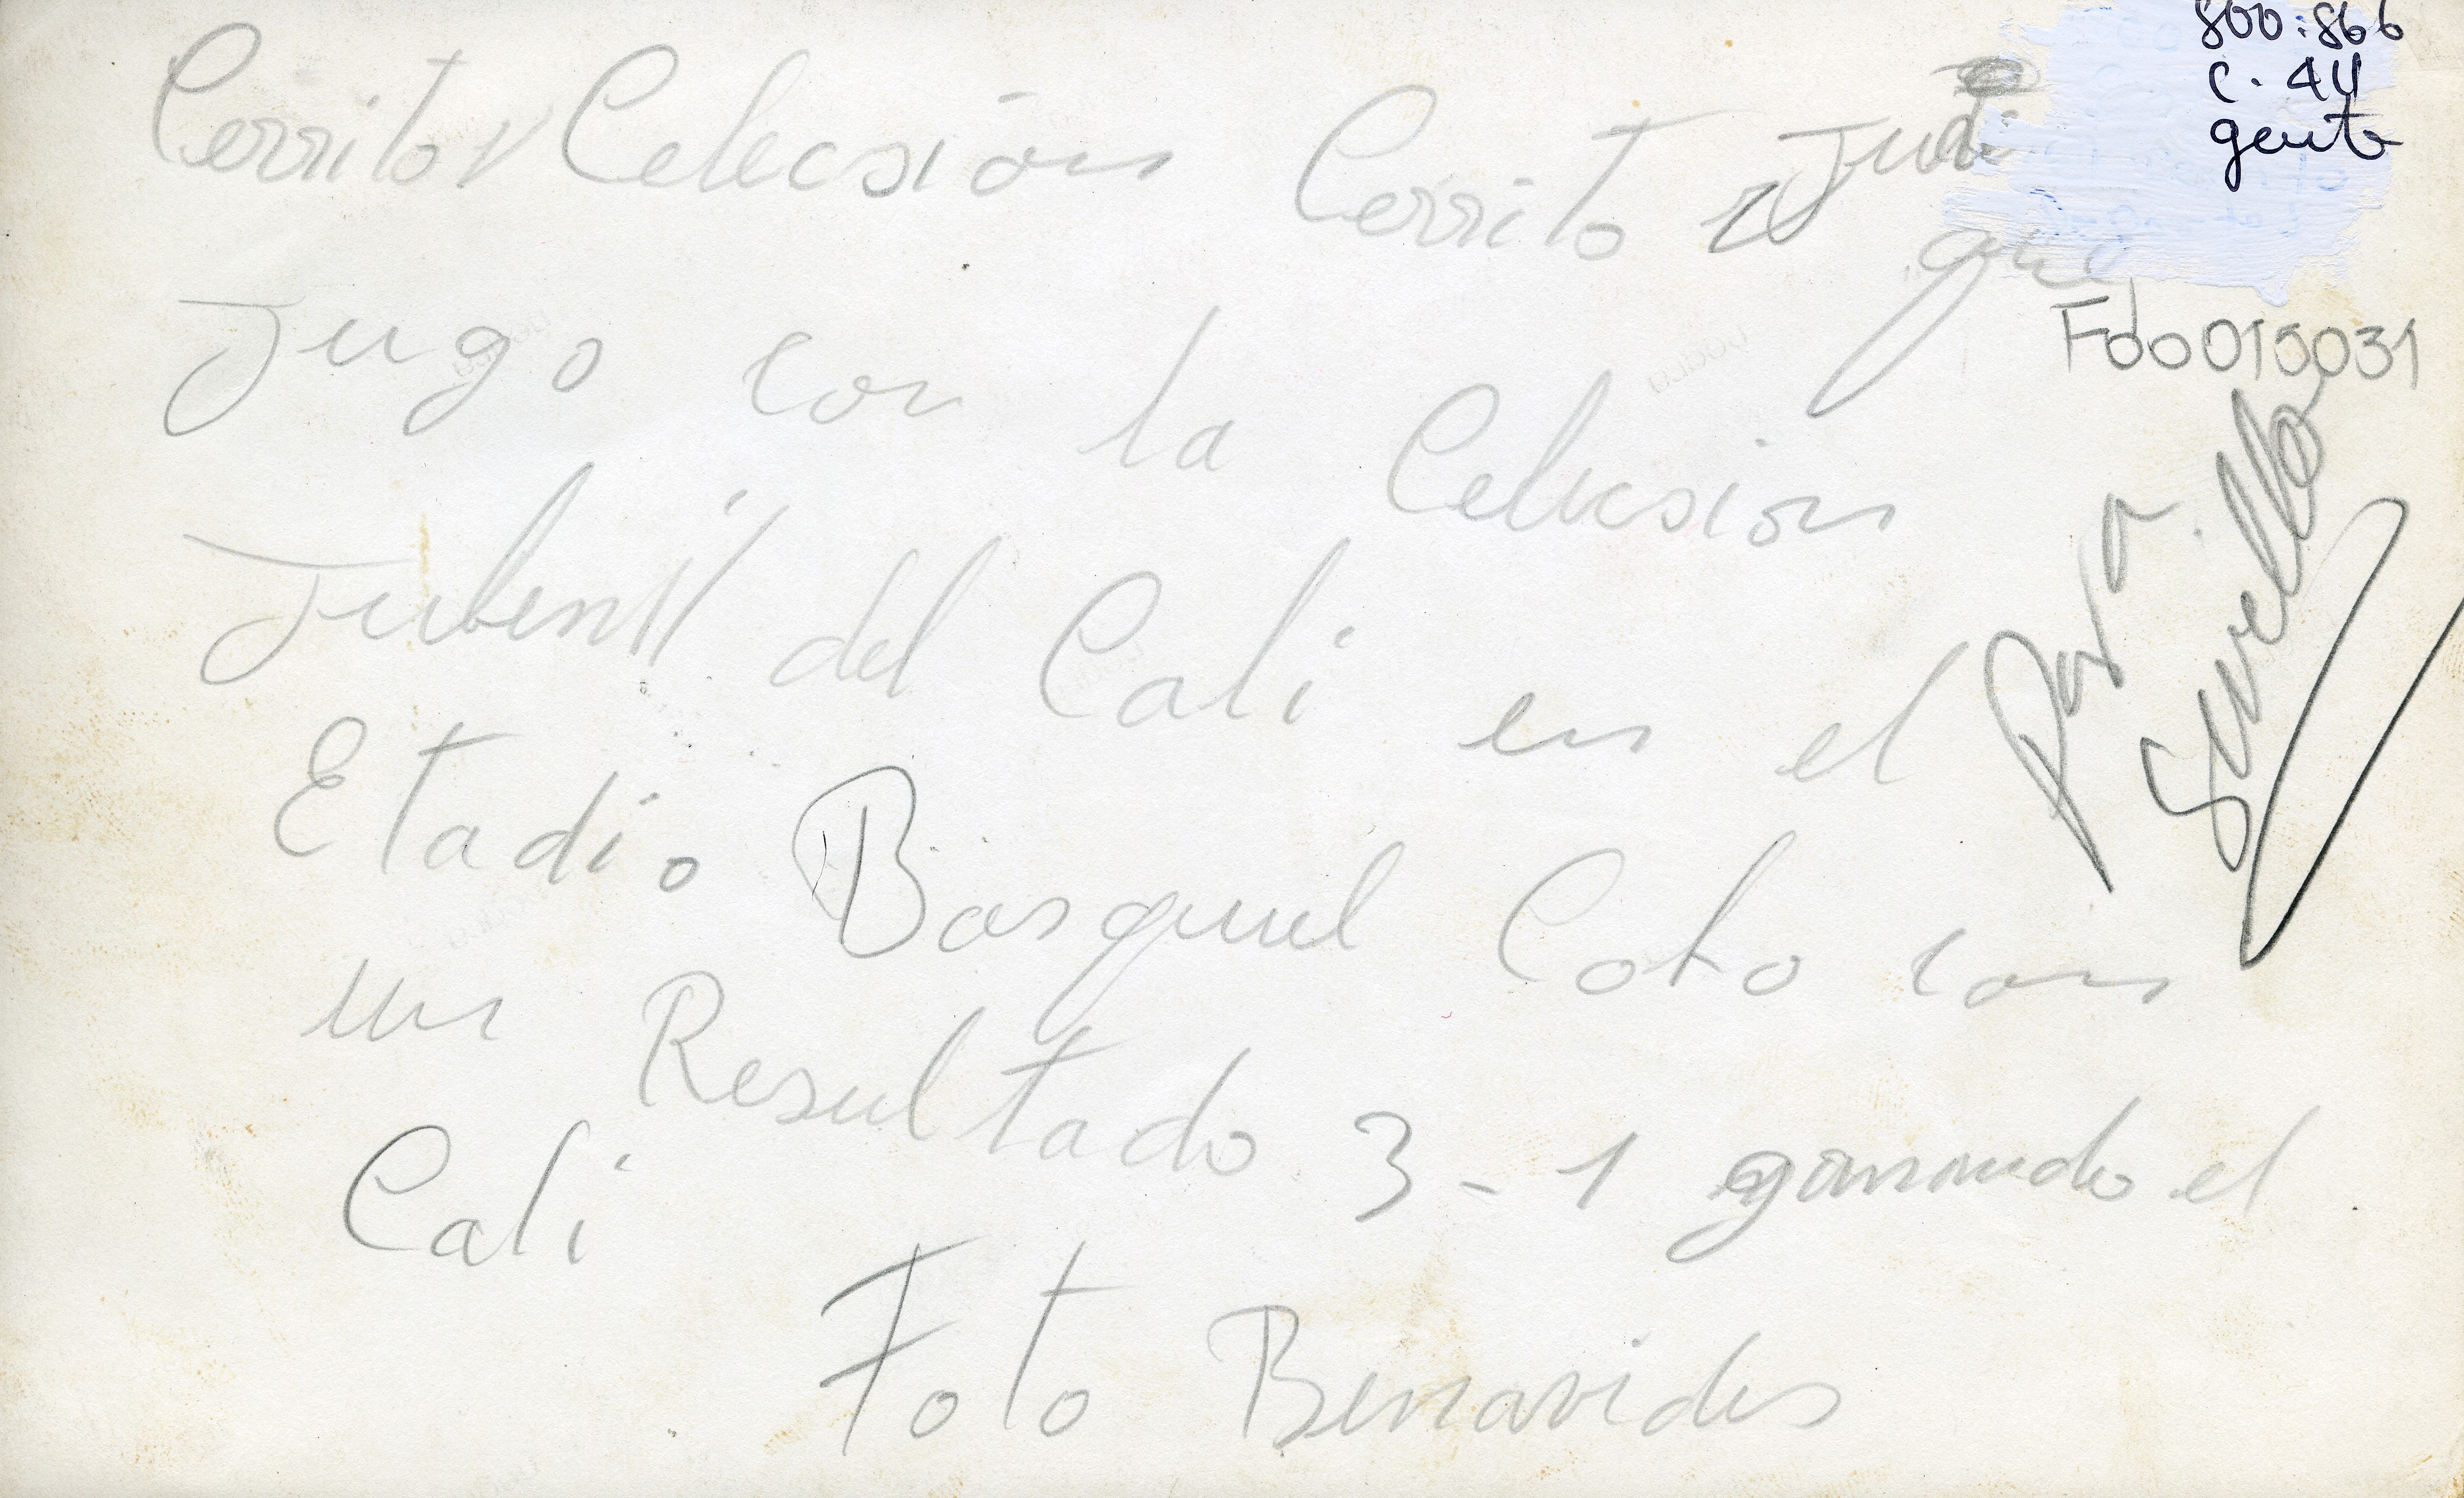 800:866
C. 44
gente
Cerrito V Celecsión Cerrito
que
Fdo 015031
Jugo con la Celecsion
Jubenil del Cali en el
Etadio Basquuel Coto con
un Resultado 3-1 ganando el
Cali
Foto Benavides
Para